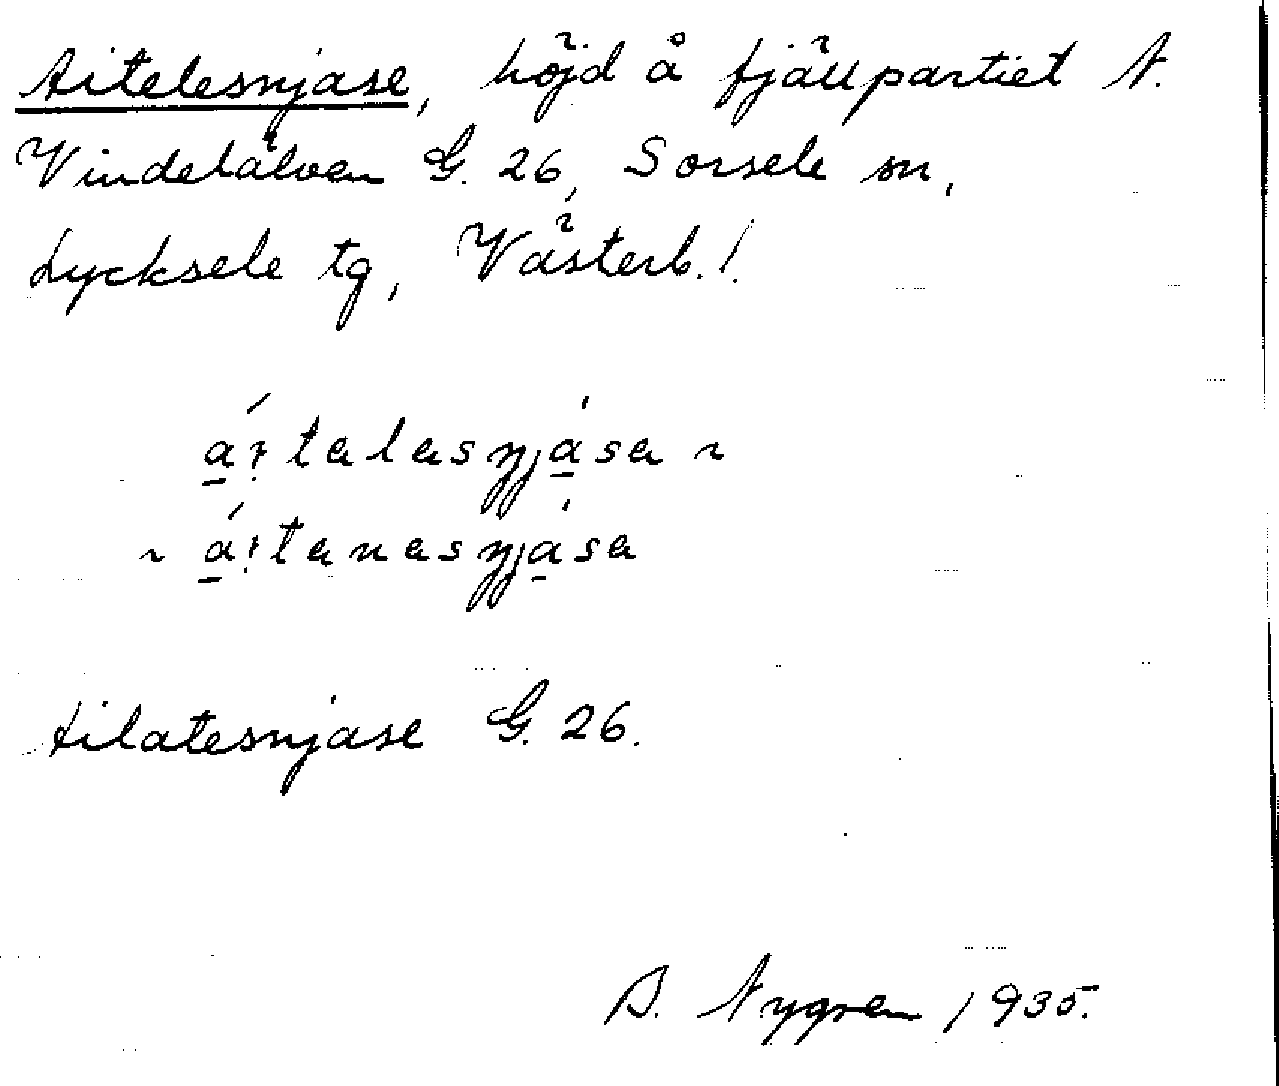 Aitelesnjase, höjd å fjällpartiet N.
Vindelälven G. 26, Sorsele sn,
Lycksele tg, Västerb. l.
á̲i̯talasŋjá̲sa ~
~ á̲i̯tanasŋjá̲sa
Ailatesnjase G. 26.
A. Nygren 1935.